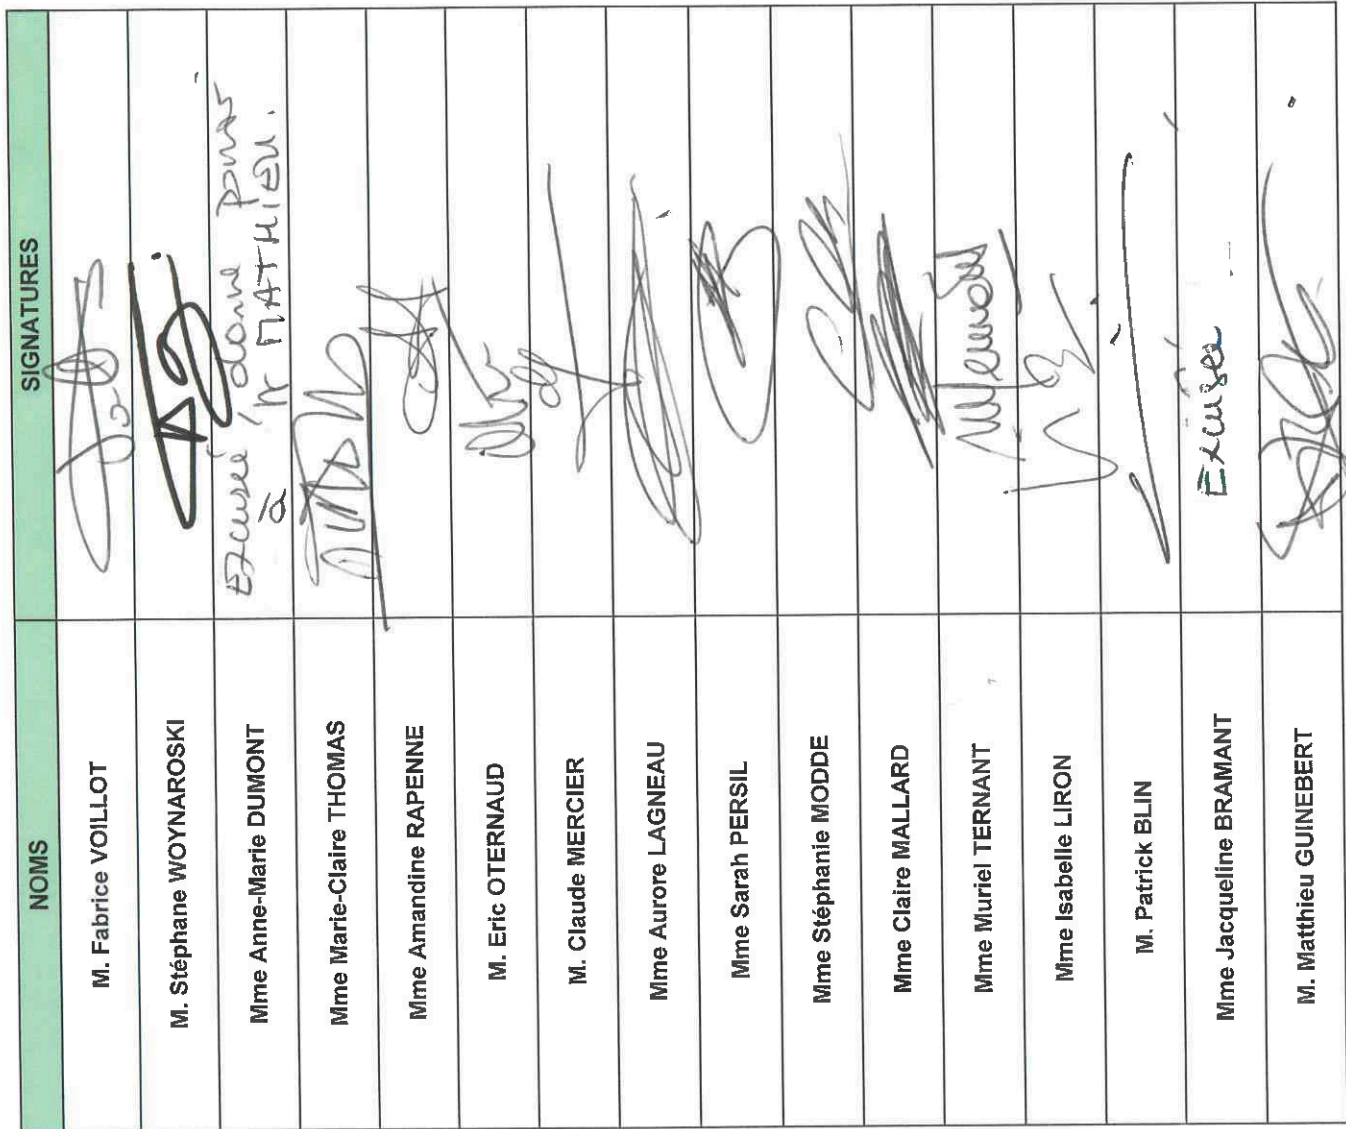 NOMS SIGNATURES
M. Fabrice VOILLOT
M. Stéphane WOYNAROSKI
Mme Anne-Marie DUMONT Excusé / donne pouvoir
à Mr MATHIEU.
Mme Marie-Claire THOMAS
Mme Amandine RAPENNE
M. Eric OTERNAUD
M. Claude MERCIER
Mme Aurore LAGNEAU
Mme Sarah PERSIL
Mme Stéphanie MODDE
Mme Claire MALLARD
Mme Muriel TERNANT
Mme Isabelle LIRON
M. Patrick BLIN
Mme Jacqueline BRAMANT Excusée
M. Matthieu GUINEBERT